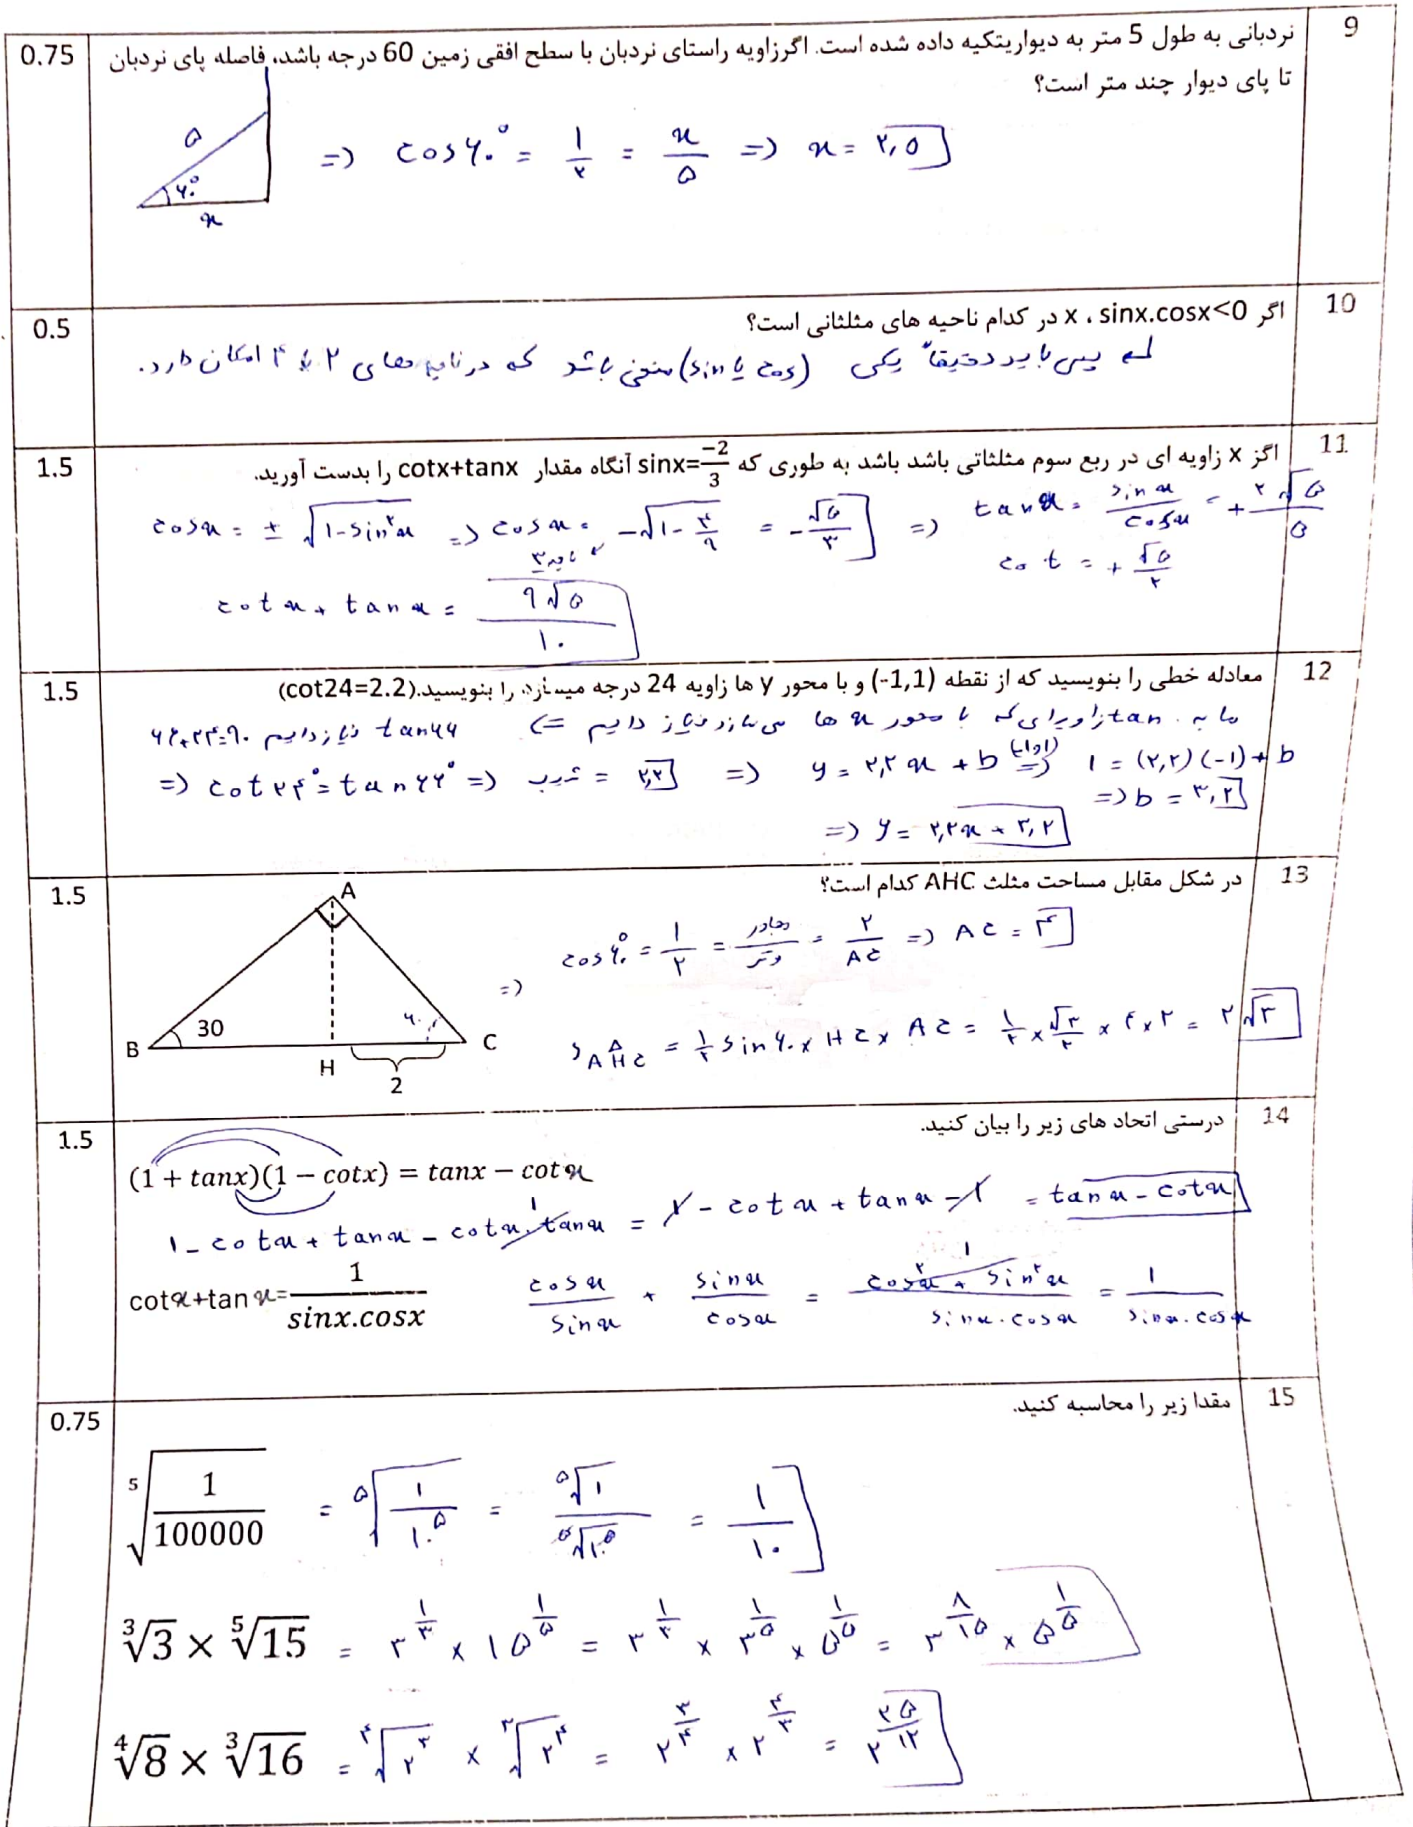 9
نردبانی به طول 5 متر به دیواریتکیه داده شده است. اگرزاویه راستای نردبان با سطح افقی زمین 60 درجه باشد، فاصله پای نردبان
0.75
تا پای دیوار چند متر است؟
۵
۶۰°
x
=> cos۶۰° = ۱/۲ = x/۵ => x = ۲,۵
10
اگر sinx.cosx<0 ، x در کدام ناحیه های مثلثاتی است؟
0.5
پس باید دقیقاً یکی (sin یا cos) منفی باشد که در ناحیه های ۲ یا ۴ امکان دارد.
11
اگز x زاویه ای در ربع سوم مثلثاتی باشد باشد به طوری که sinx=-2/3 آنگاه مقدار cotx+tanx را بدست آورید.
1.5
cosx = ± √(۱-sin²x) => cosx = -√(۱-۴/۹) = -√۵/۳ => tanx = sinx/cosx = +۲√۵/۵
ناحیه ۳
cot = +√۵/۲
cotx + tanx = ۹√۵/۱۰
12
معادله خطی را بنویسید که از نقطه (1,1-) و با محور y ها زاویه 24 درجه میسازد، را بنویسید.(cot24=2.2)
1.5
ما به tan زاویه ای که با محور x ها می سازد نیاز داریم => ۶۶+۲۴=۹۰ نیاز داریم tan۶۶
=> cot۲۴° = tan۶۶° => شیب = ۲,۲ => y = ۲,۲x + b => ۱ = (۲,۲)(-۱)+b
=> b = ۳,۲
=> y = ۲,۲x + ۳,۲
13
در شکل مقابل مساحت مثلث AHC کدام است؟
1.5
A
B
30
۶۰
C
H
2
=> cos۶۰° = ۱/۲ = مجاور/وتر = ۲/AC => AC = ۴
S AHC = ۱/۲ sin۶۰ × HC × AC = ۱/۲ × √۳/۲ × ۴ × ۲ = ۲√۳
14
درستی اتحاد های زیر را بیان کنید.
1.5
(1 + tanx)(1 − cotx) = tanx − cotx
۱ - cotx + tanx - cotx.tanx = ۱ - cotx + tanx - ۱ = tanx - cotx
1
cotx+tanx=1/sinx.cosx
cosx/sinx + sinx/cosx = cos²x + sin²x/sinx.cosx = ۱/sinx.cosx
1
15
مقدا زیر را محاسبه کنید.
0.75
⁵√(1/100000) = ⁵√(۱/۱۰^۵) = ⁵√۱/⁵√۱۰^۵ = ۱/۱۰
³√3 × ⁵√15 = ۳^(۱/۳) × ۱۵^(۱/۵) = ۳^(۱/۳) × ۳^(۱/۵) × ۵^(۱/۵) = ۳^(۸/۱۵) × ۵^(۱/۵)
⁴√8 × ³√16 = ⁴√۲^۳ × ³√۲^۴ = ۲^(۳/۴) × ۲^(۴/۳) = ۲^(۲۵/۱۲)